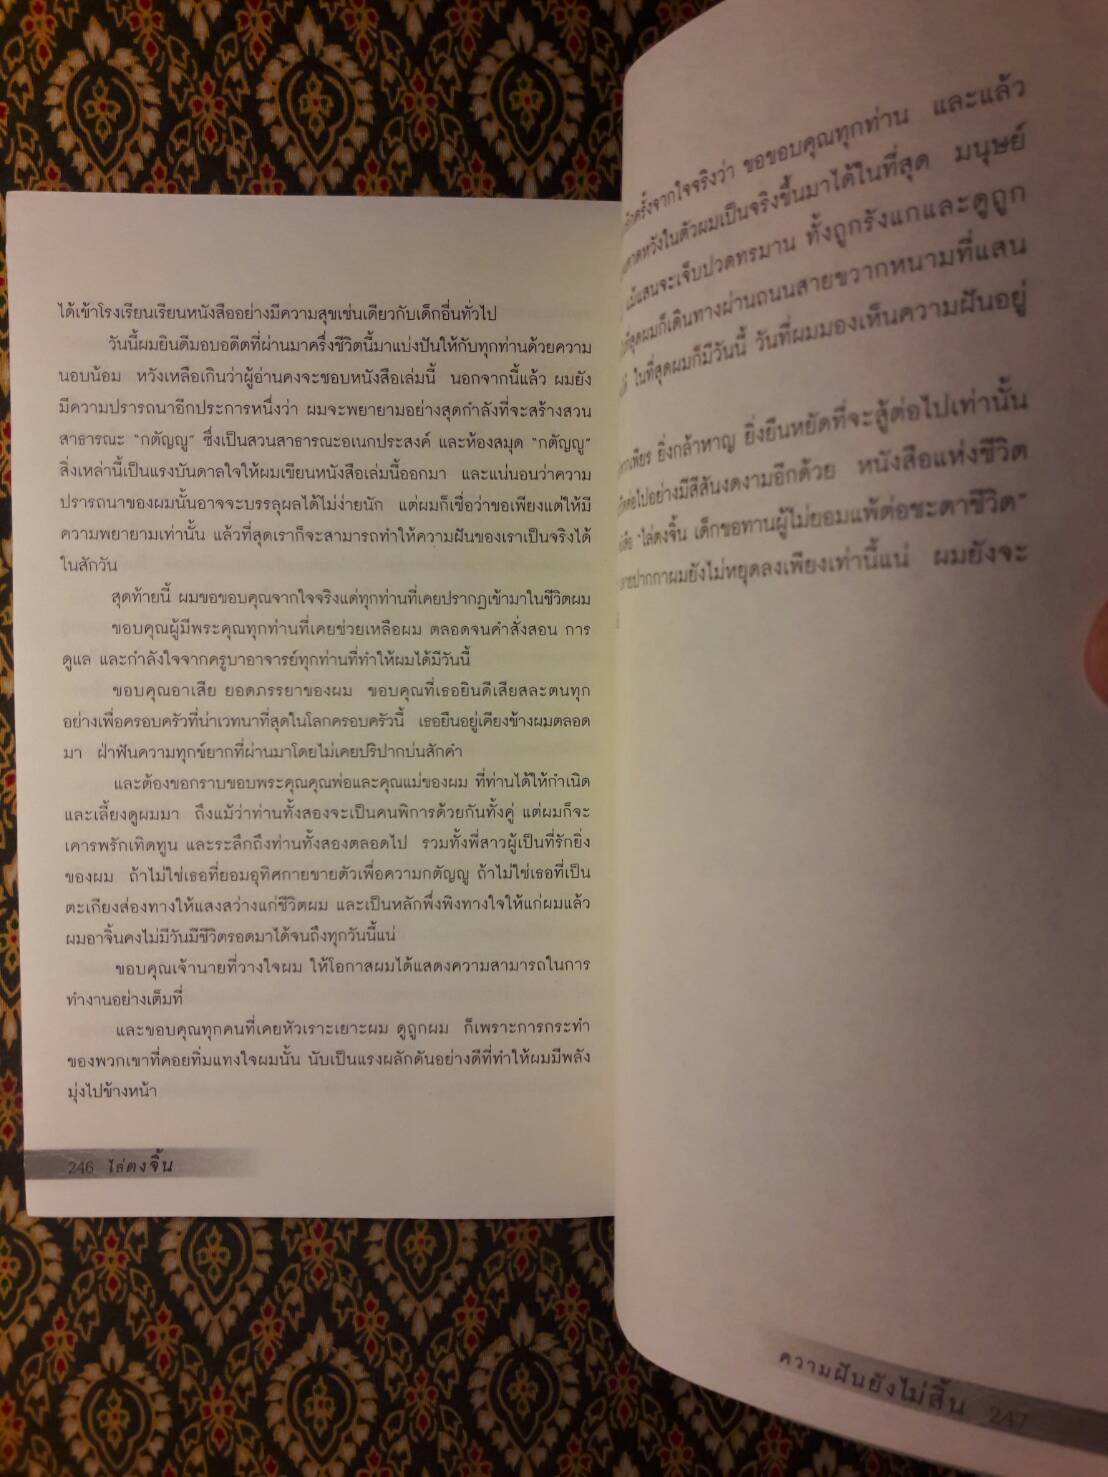 ได้เข้าโรงเรียนเรียนหนังสืออย่างมีความสุขเช่นเดียวกับเด็กอื่นทั่วไป
วันนี้ผมยินดีมอบอดีตที่ผ่านมาครึ่งชีวิตนี้มาแบ่งปันให้กับทุกท่านด้วยความ
นอบน้อม หวังเหลือเกินว่าผู้อ่านคงจะชอบหนังสือเล่มนี้ นอกจากนี้แล้ว ผมยัง
มีความปรารถนาอีกประการหนึ่งว่า ผมจะพยายามอย่างสุดกำลังที่จะสร้างสวน
สาธารณะ “กตัญญู” ซึ่งเป็นสวนสาธารณะอเนกประสงค์ และห้องสมุด “กตัญญู”
สิ่งเหล่านี้เป็นแรงบันดาลใจให้ผมเขียนหนังสือเล่มนี้ออกมา และแน่นอนว่าความ
ปรารถนาของผมนั้นอาจจะบรรลุผลได้ไม่ง่ายนัก แต่ผมก็เชื่อว่าขอเพียงแต่ให้มี
ความพยายามเท่านั้น แล้วที่สุดเราก็จะสามารถทำให้ความฝันของเราเป็นจริงได้
ในสักวัน
สุดท้ายนี้ ผมขอขอบคุณจากใจจริงแด่ทุกท่านที่เคยปรากฏเข้ามาในชีวิตผม
ขอบคุณผู้มีพระคุณทุกท่านที่เคยช่วยเหลือผม ตลอดจนคำสั่งสอน การ
ดูแล และกำลังใจจากครูบาอาจารย์ทุกท่านที่ทำให้ผมได้มีวันนี้
ขอบคุณอาเสีย ยอดภรรยาของผม ขอบคุณที่เธอยินดีเสียสละตนทุก
อย่างเพื่อครอบครัวที่น่าเวทนาที่สุดในโลกครอบครัวนี้ เธอยืนอยู่เคียงข้างผมตลอด
มา ฝ่าฟันความทุกข์ยากที่ผ่านมาโดยไม่เคยปริปากบ่นสักคำ
และต้องขอกราบขอบพระคุณคุณพ่อและคุณแม่ของผม ที่ท่านได้ให้กำเนิด
และเลี้ยงดูผมมา ถึงแม้ว่าท่านทั้งสองจะเป็นคนพิการด้วยกันทั้งคู่ แต่ผมก็จะ
เคารพรักเทิดทูน และระลึกถึงท่านทั้งสองตลอดไป รวมทั้งพี่สาวผู้เป็นที่รักยิ่ง
ของผม ถ้าไม่ใช่เธอที่ยอมอุทิศกายขายตัวเพื่อความกตัญญู ถ้าไม่ใช่เธอที่เป็น
ตะเกียงส่องทางให้แสงสว่างแก่ชีวิตผม และเป็นหลักพึ่งพิงทางใจให้แก่ผมแล้ว
ผมอาจิ้นคงไม่มีวันมีชีวิตรอดมาได้จนถึงทุกวันนี้แน่
ขอบคุณเจ้านายที่วางใจผม ให้โอกาสผมได้แสดงความสามารถในการ
ทำงานอย่างเต็มที่
และขอบคุณทุกคนที่เคยหัวเราะเยาะผม ดูถูกผม ก็เพราะการกระทำ
ของพวกเขาที่คอยทิ่มแทงใจผมนั้น นับเป็นแรงผลักดันอย่างดีที่ทำให้ผมมีพลัง
มุ่งไปข้างหน้า
246 ไล่ตงจิ้น
ครั้งจากใจจริงว่า ขอขอบคุณทุกท่าน และแล้ว
คาดหวังในตัวผมเป็นจริงขึ้นมาได้ในที่สุด มนุษย์
แม้แสนจะเจ็บปวดทรมาน ทั้งถูกรังแกและดูถูก
ที่สุดผมก็เดินทางผ่านถนนสายขวากหนามที่แสน
ในที่สุดผมก็มีวันนี้ วันที่ผมมองเห็นความฝันอยู่
ยิ่งกล้าหาญ ยิ่งยืนหยัดที่จะสู้ต่อไปเท่านั้น
ต่อไปอย่างมีสีสันงดงามอีกด้วย หนังสือแห่งชีวิต
“ไล่ตงจิ้น เด็กขอทานผู้ไม่ยอมแพ้ต่อชะตาชีวิต”
ปากกาผมยังไม่หยุดลงเพียงเท่านี้แน่ ผมยังจะ
ความฝันยังไม่สิ้น 247